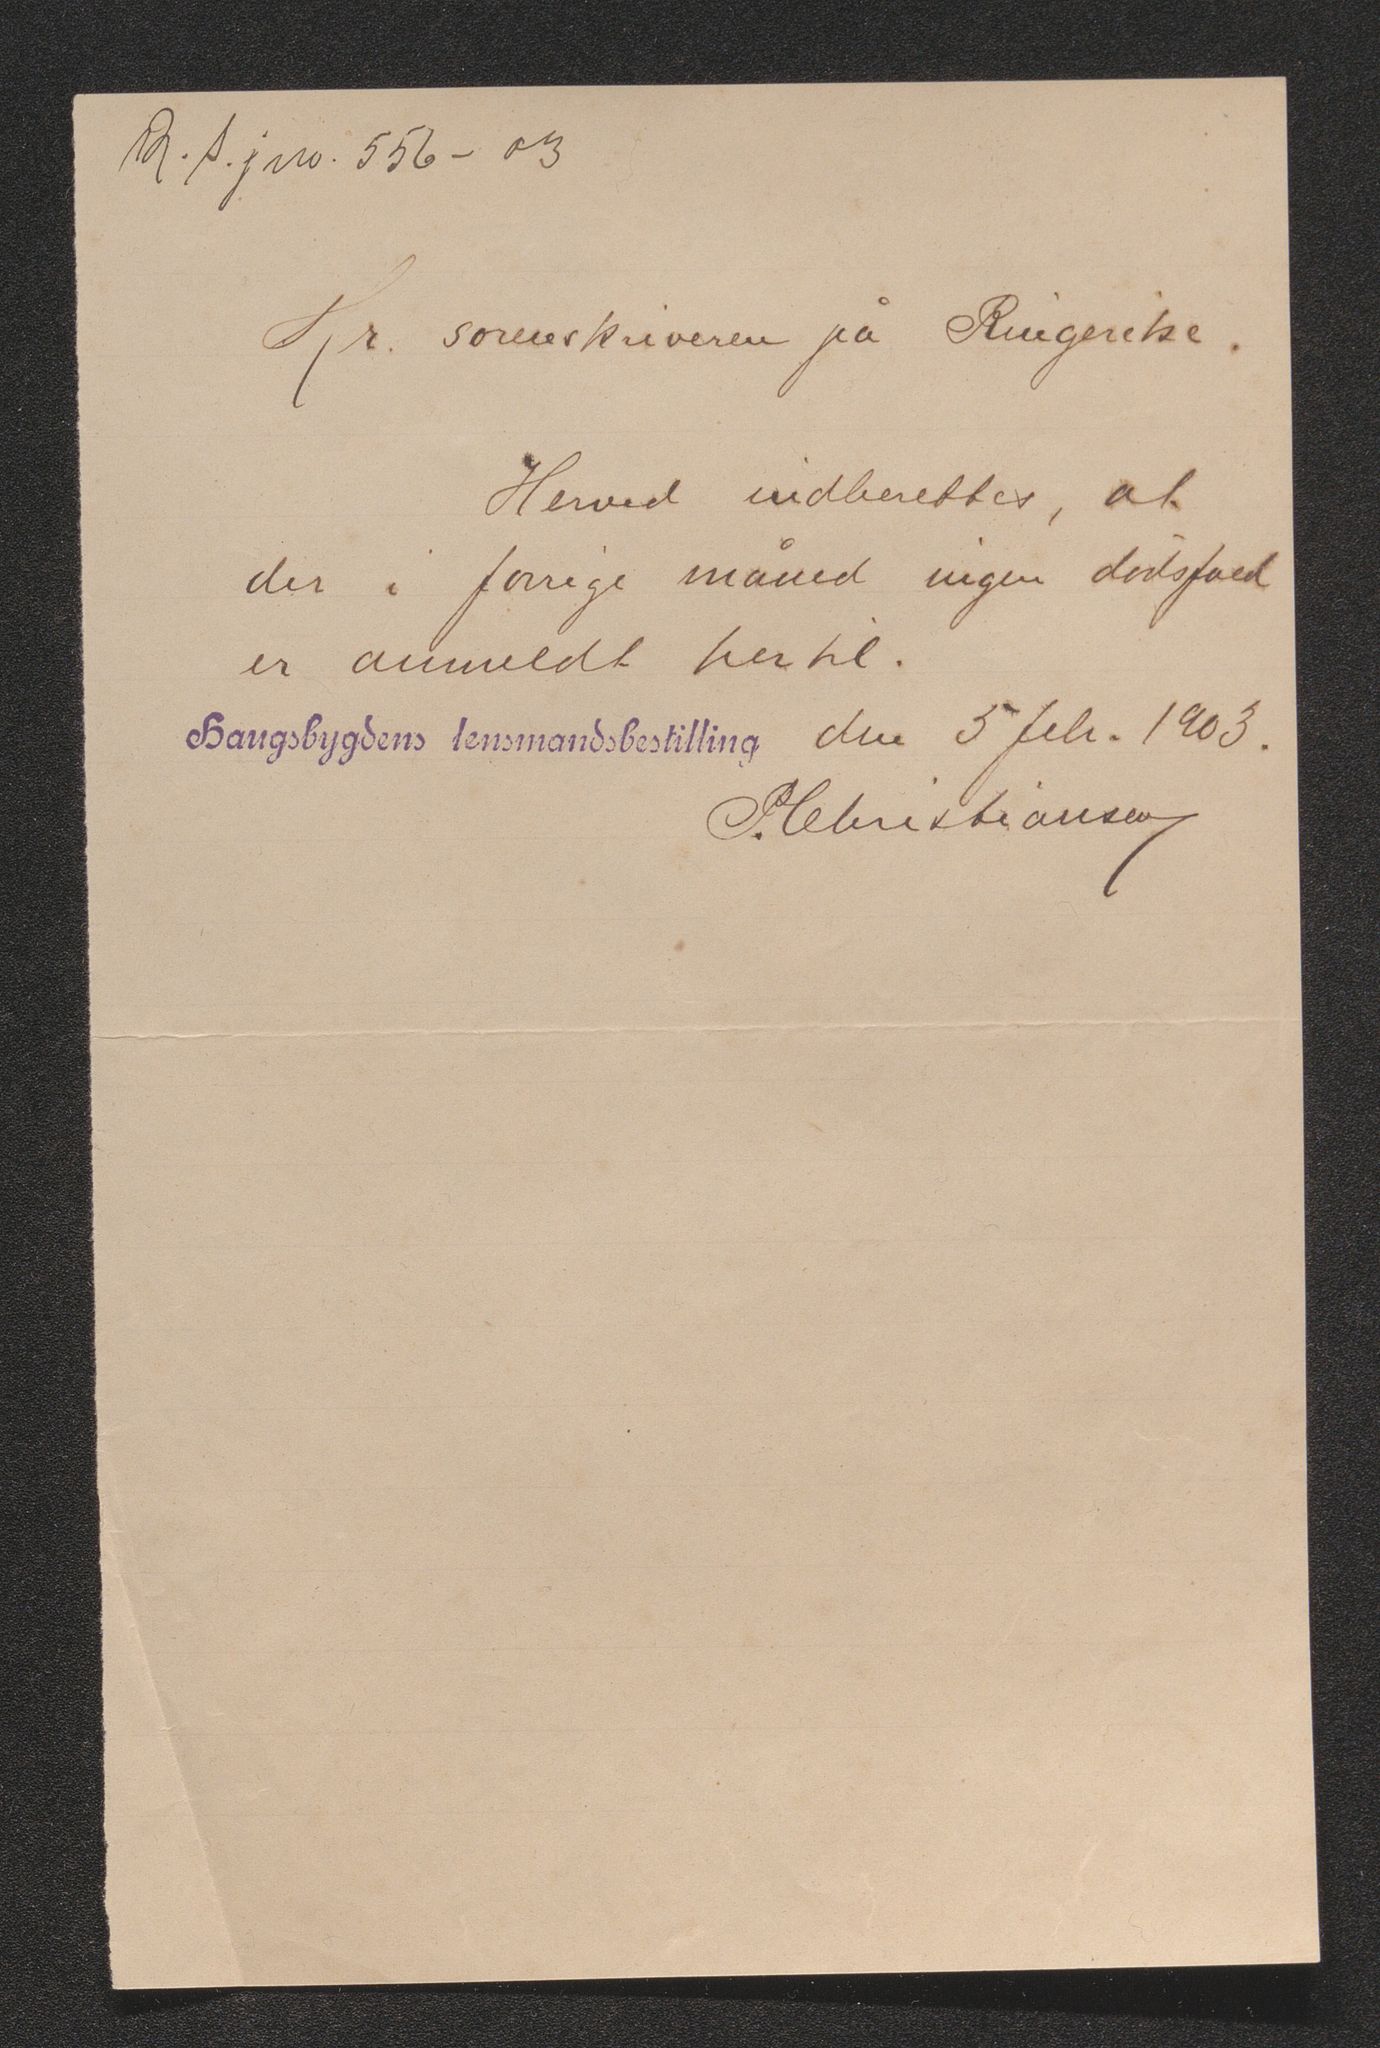 R. s. j no. 556 - 03
Hr. sorenskriveren på Ringerike.
Herved indberettes, at
der i forrige måned ingen dødsfald
er anmeldt hertil.
Haugsbygdens lensmandsbestilling den 5 febr. 1903.
P. Christiansen